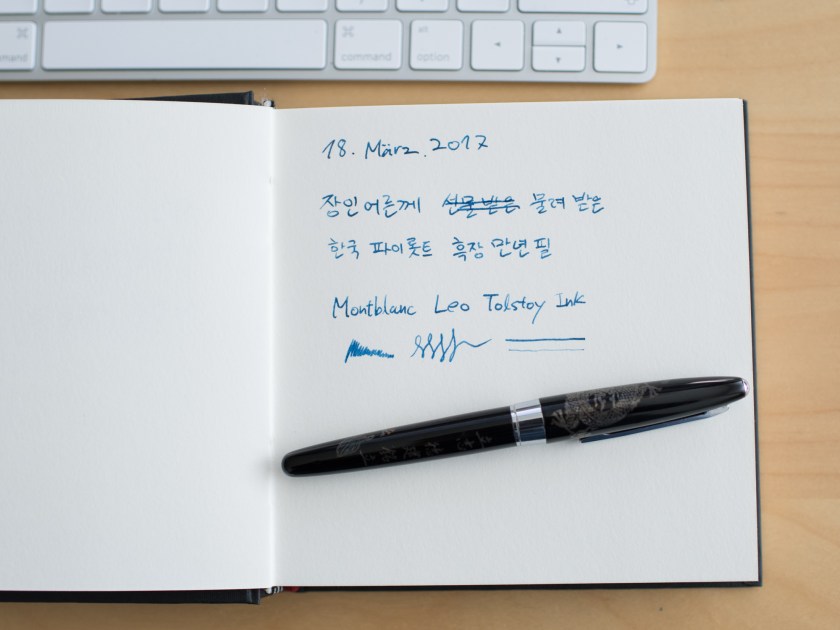 ⌘
command
alt
option
mmand
18. März. 2017
장인어른께 선물받은 물려 받은
한국 파이롯트 흑장 만년필
Montblanc Leo Tolstoy Ink